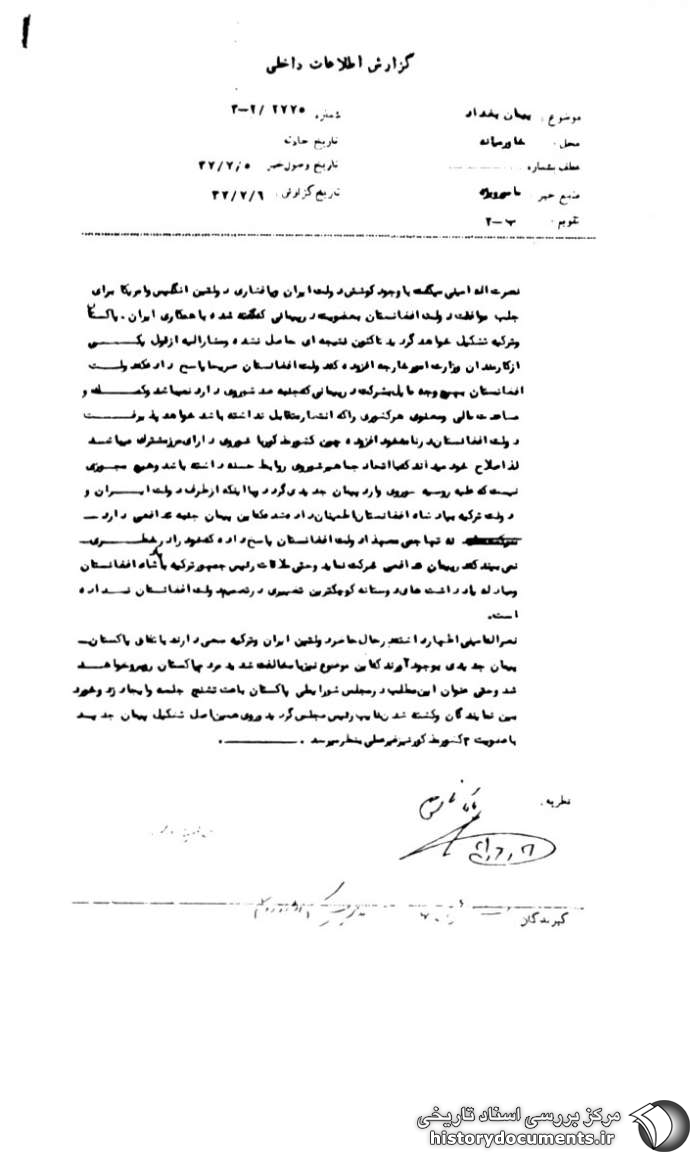 ۱
گزارش اطلاعات داخلی
موضوع : پیمان بغداد
شماره ۲۲۲۵ /۲-۳
محل : خاورمیانه
تاریخ حادثه
عطف بشماره
تاریخ وصول خبر ۳۷/۷/۵
منبع خبر
تاریخ گزارش : ۳۷/۷/۶
تقویم : ب-۲
نصرت اله امینی میگفت با وجود کوشش دولت ایران و پافشاری دولتین انگلیس و امریکا برای
جلب موافقت دولت افغانستان بعضویت در پیمانی که گفته شده با همکاری ایران . پاکستان
و ترکیه تشکیل خواهد گردید تاکنون نتیجه ای حاصل نشده و مشارالیه از قول یکــــی
از کارمندان وزارت امور خارجه افزوده که دولت افغانستان صریحا پاسخ داده که دولــت
افغانستان بهیچ وجه مایل بشرکت در پیمانی که جنبه ضد شوروی دارد نمیباشد و کمــک و
مساعدت مالی و معنوی هر کشوری را که انتظار متقابل نداشته باشد خواهد پذیرفــت
دولت افغانستان در نامه خود افزوده چون کشور مذکور با شوروی دارای مرز مشترک میباشد
لذا صلاح خود میداند که با اتحاد جماهیر شوروی روابط حسنه داشته باشد و هیچ مجوزی
نیست که علیه روسیه شوروی وارد پیمان جدیدی گردد و با اینکه از طرف دولت ایــران و
دولت ترکیه بپادشاه افغانستان اطمینان داده شده که این پیمان جنبه تدافعی دارد ــ
نه تهاجمی معهذا دولت افغانستان پاسخ داده که خود را در خطری
نمی بیند که در پیمان تدافعی شرکت نماید و حتی ملاقات رئیس جمهور ترکیه با شاه افغانستان
و مبادله یادداشت های دوستانه کوچکترین تغییری در تصمیم دولت افغانستان نــداده
است .
نصراله امینی اظهار داشته در حال حاضر دولتین ایران و ترکیه سعی دارند با اتکای پاکستان ــ
پیمان جدیدی بوجود آورند که این موضوع نیز با مخالفت شدید مردم پاکستان روبرو خواهــد
شد و حتی عنوان این مطلب در مجلس شورایملی پاکستان باعث تشنج جلسه و ایجاد زد و خورد
بین نمایندگان و کشته شدن نایب رئیس مجلس گردیده و روی همین اصل تشکیل پیمان جدیــد
با عضویت ۳ کشور مذکور نیز غیر عملی بنظر میرسد .
نظریه .
گیرندگان
مرکز بررسی اسناد تاریخی
historydocuments.ir